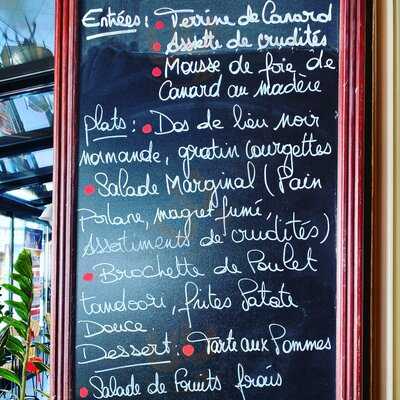 Entrées: • Terrine de Canard
• Assiette de crudités
• Mousse de foie de
Canard au madère
plats: • Dos de lieu noir
normande, gratin Courgettes
• Salade Marginal (Pain
Poilane, magret fumé,
Assortiments de crudités)
• Brochette de Poulet
tandoori, frites Patate
Douce.
Dessert: • Tarte aux Pommes
• Salade de Fruits frais